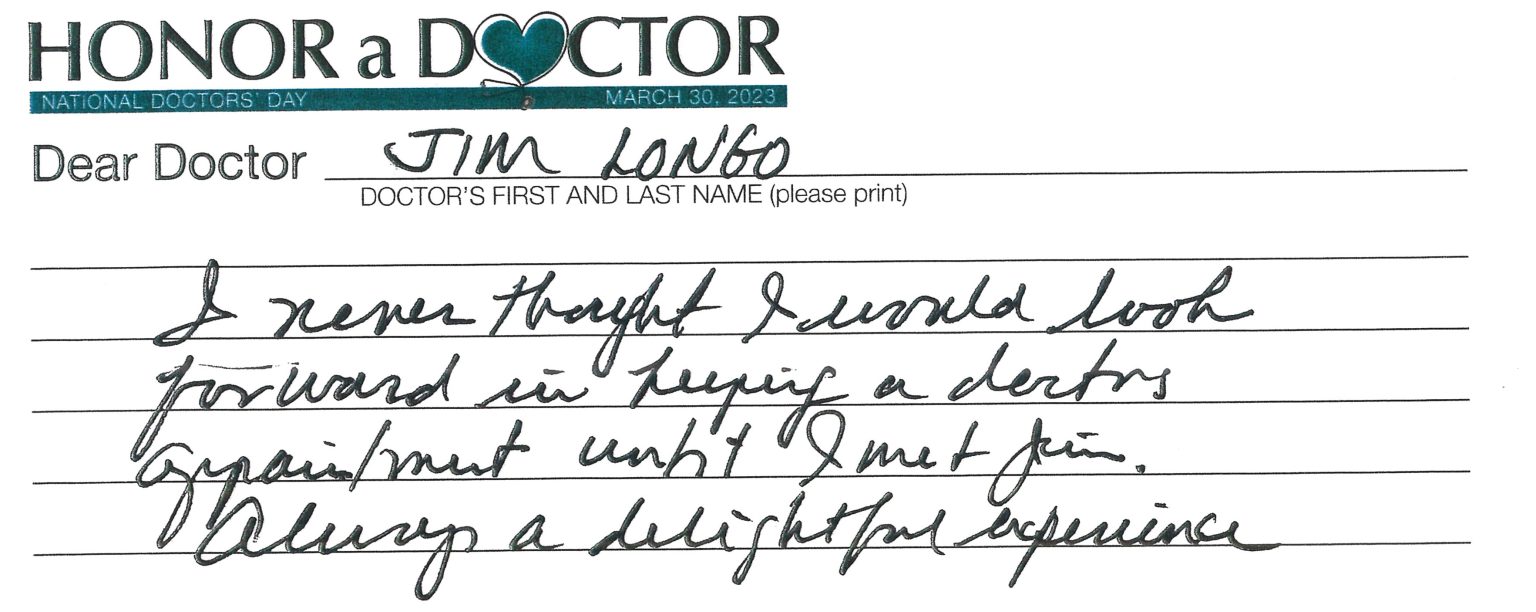 HONOR a DOCTOR
NATIONAL DOCTORS' DAY MARCH 30, 2023
Dear Doctor JIM LONGO
DOCTOR'S FIRST AND LAST NAME (please print)
I never thought I would look
forward in keeping a doctors
appointment until I met Jim.
Always a delightful experience